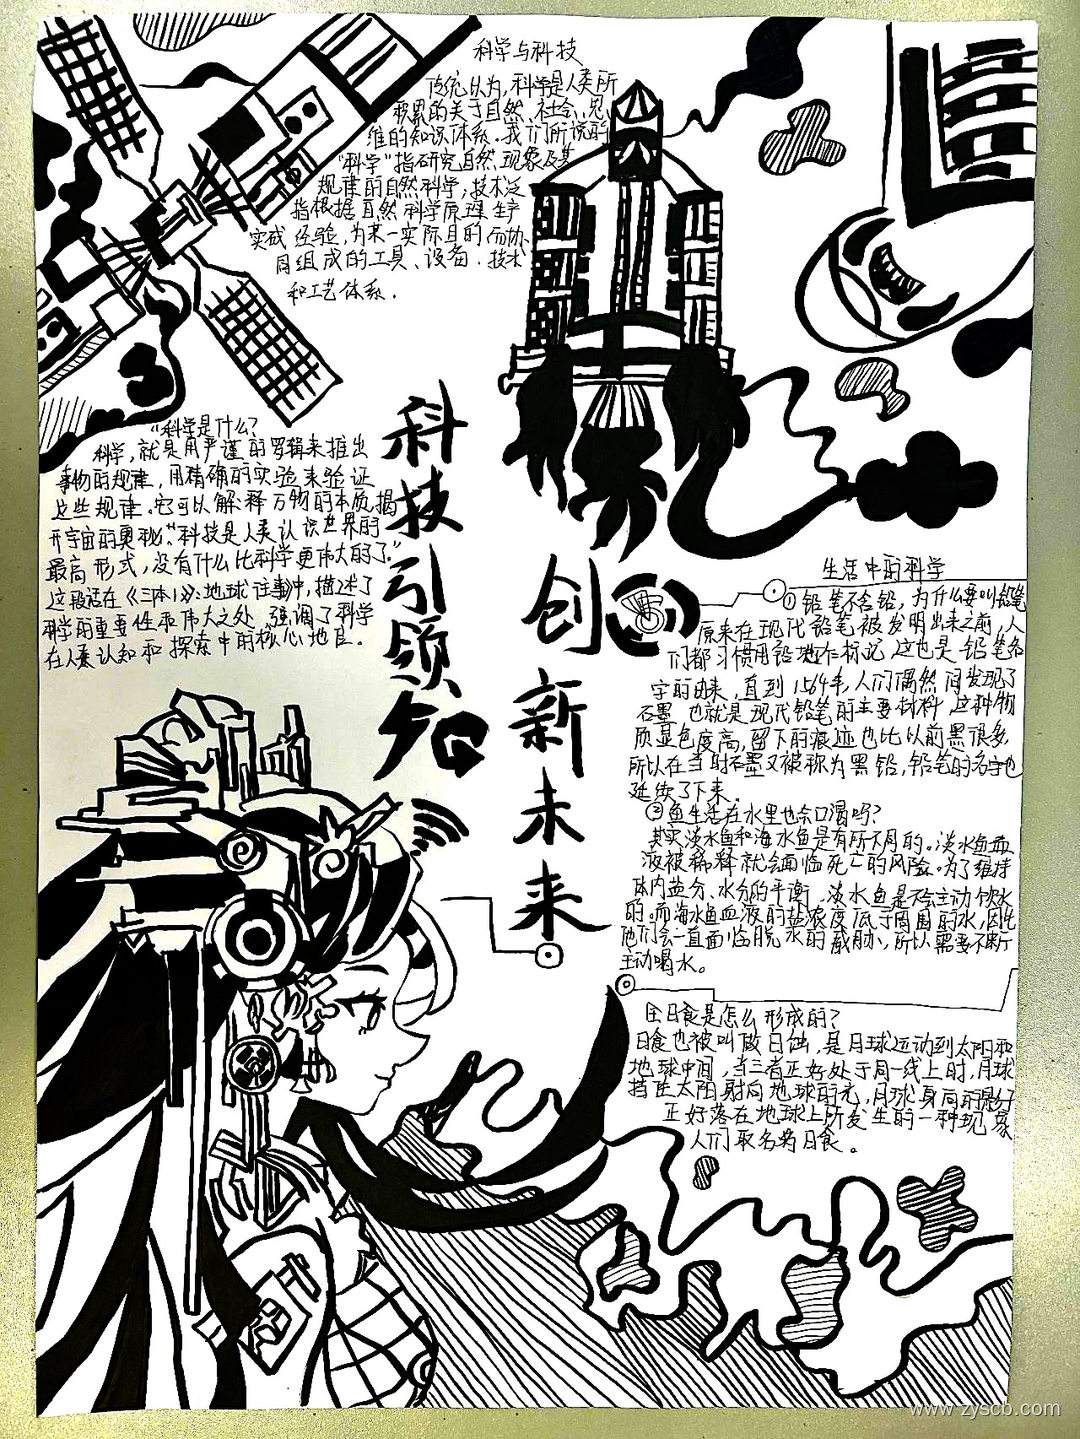 科学与科技
传统认为,科学是人类所
积累的关于自然、社会、思
维的知识体系。我们所说的
"科学"指研究自然、现象及其
规律的自然科学;技术泛
指根据自然科学原理生产
实成经验,为某一实际目的而协
同组成的工具、设备、技术
和工艺体系.
"科学是什么?
科学,就是用严谨的逻辑来推出
事物的规律,用精确的实验来验证
这些规律。它可以解释万物的本质揭
开宇宙的奥秘."科技是人类认识世界的
最高形式,没有什么比科学更伟大的了."
这段话在《三体1》:地球往事中,描述了
科学的重要性乖伟大之处,强调了科学
在人类认知和探索中的核心地直.
科技引领知
创新未来
生活中的科学
①铅笔不含铅,为什么要叫铅笔
原来在现代铅笔被发明出来之前,人
们都习惯用铅地作标记,这也是铅笔名
字的由来,直到1564年,人们偶然间发现了
石墨,也就是现代铅笔的主要材料,这种物
质显色度高,留下的痕迹也比以前黑很多,
所以在当时石墨又被称为黑铅,铅笔的名字也
延续了下来。
②鱼生活在水里也会口渴吗?
其实淡水鱼和海水鱼是有所不同的。淡水鱼血
液被稀释就会面临死亡的风险.为了维持
体内盐分、水分的平衡,淡水鱼是不会主动饮水
的。而海水鱼血液的盐浓度低于周围的水,因此
他们会一直面临脱水的威胁,所以需要不断
主动喝水。
日食是怎么形成的?
日食也被叫做日蚀,是月球运动到太阳和
地球中间,当三者正好处于同一线上时.月球
挡住太阳射向地球的光,月球身后的黑影
正好落在地球上所发生的一种现象
人们取名为日食。
www.zyscb.com